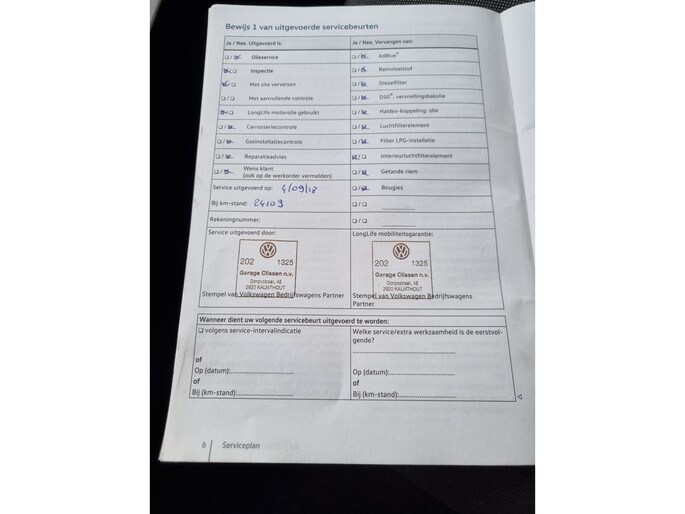 Bewijs 1 van uitgevoerde servicebeurten
Ja / Nee. Uitgevoerd is:
Ja / Nee. Vervangen van:
❑ / ❑ Olieservice
❑ / ❑ AdBlue®
❑ / ❑ Inspectie
❑ / ❑ Remvloeistof
❑ / ❑ Met olie verversen
❑ / ❑ Dieselfilter
❑ / ❑ Met aanvullende controle
❑ / ❑ DSG®, versnellingsbakolie
❑ / ❑ LongLife motorolie gebruikt
❑ / ❑ Haldex-koppeling: olie
❑ / ❑ Carrosseriecontrole
❑ / ❑ Luchtfilterelement
❑ / ❑ Gasinstallatiecontrole
❑ / ❑ Filter LPG-installatie
❑ / ❑ Reparatieadvies
❑ / ❑ Interieurluchtfilterelement
❑ / ❑ Wens klant
(ook op de werkorder vermelden)
❑ / ❑ Getande riem
Service uitgevoerd op: 4/09/18
❑ / ❑ Bougies
Bij km-stand: 24109
❑ / ❑
Rekeningnummer:
❑ / ❑
Service uitgevoerd door:
LongLife mobiliteitsgarantie:
202 1325
Garage Clissen n.v.
Dorpsstraat, 48
2920 KALMTHOUT
Stempel van Volkswagen Bedrijfswagens Partner
202 1325
Garage Clissen n.v.
Dorpsstraat, 48
2920 KALMTHOUT
Stempel van Volkswagen Bedrijfswagens
Partner
Wanneer dient uw volgende servicebeurt uitgevoerd te worden:
❑ volgens service-intervalindicatie
of
Op (datum):
of
Bij (km-stand):
Welke service/extra werkzaamheid is de eerstvol-
gende?
Op (datum):
of
Bij (km-stand):
6 Serviceplan